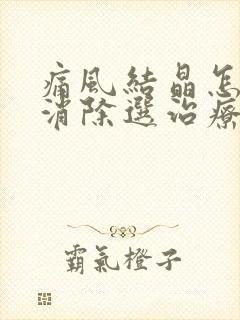 痛風結晶怎
消除選治療
霸氣橙子